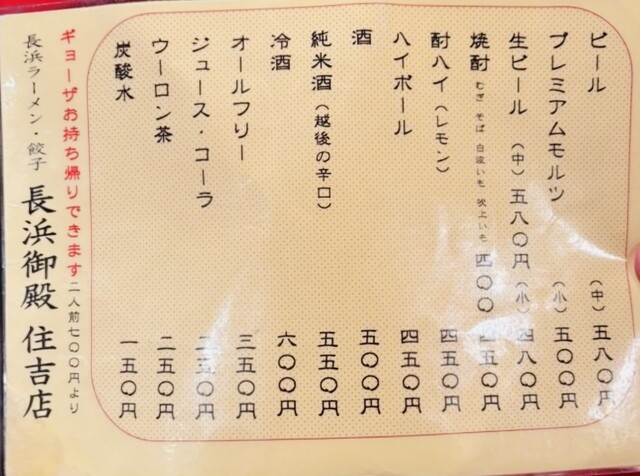 ビール (中) 五八〇円
プレミアムモルツ (小) 五〇〇円
生ビール (中) 五八〇円 (小) 四八〇円
焼酎 むぎ そば 白波いも 吹上いも 四〇〇 四五〇円
酎ハイ(レモン) 四五〇円
ハイボール 四五〇円
酒 五〇〇円
純米酒(越後の辛口) 五五〇円
冷酒 六〇〇円
オールフリー 三五〇円
ジュース・コーラ 二五〇円
ウーロン茶 二五〇円
炭酸水 一五〇円
ギョーザお持ち帰りできます 二人前七〇〇円より
長浜ラーメン・餃子 長浜御殿 住吉店